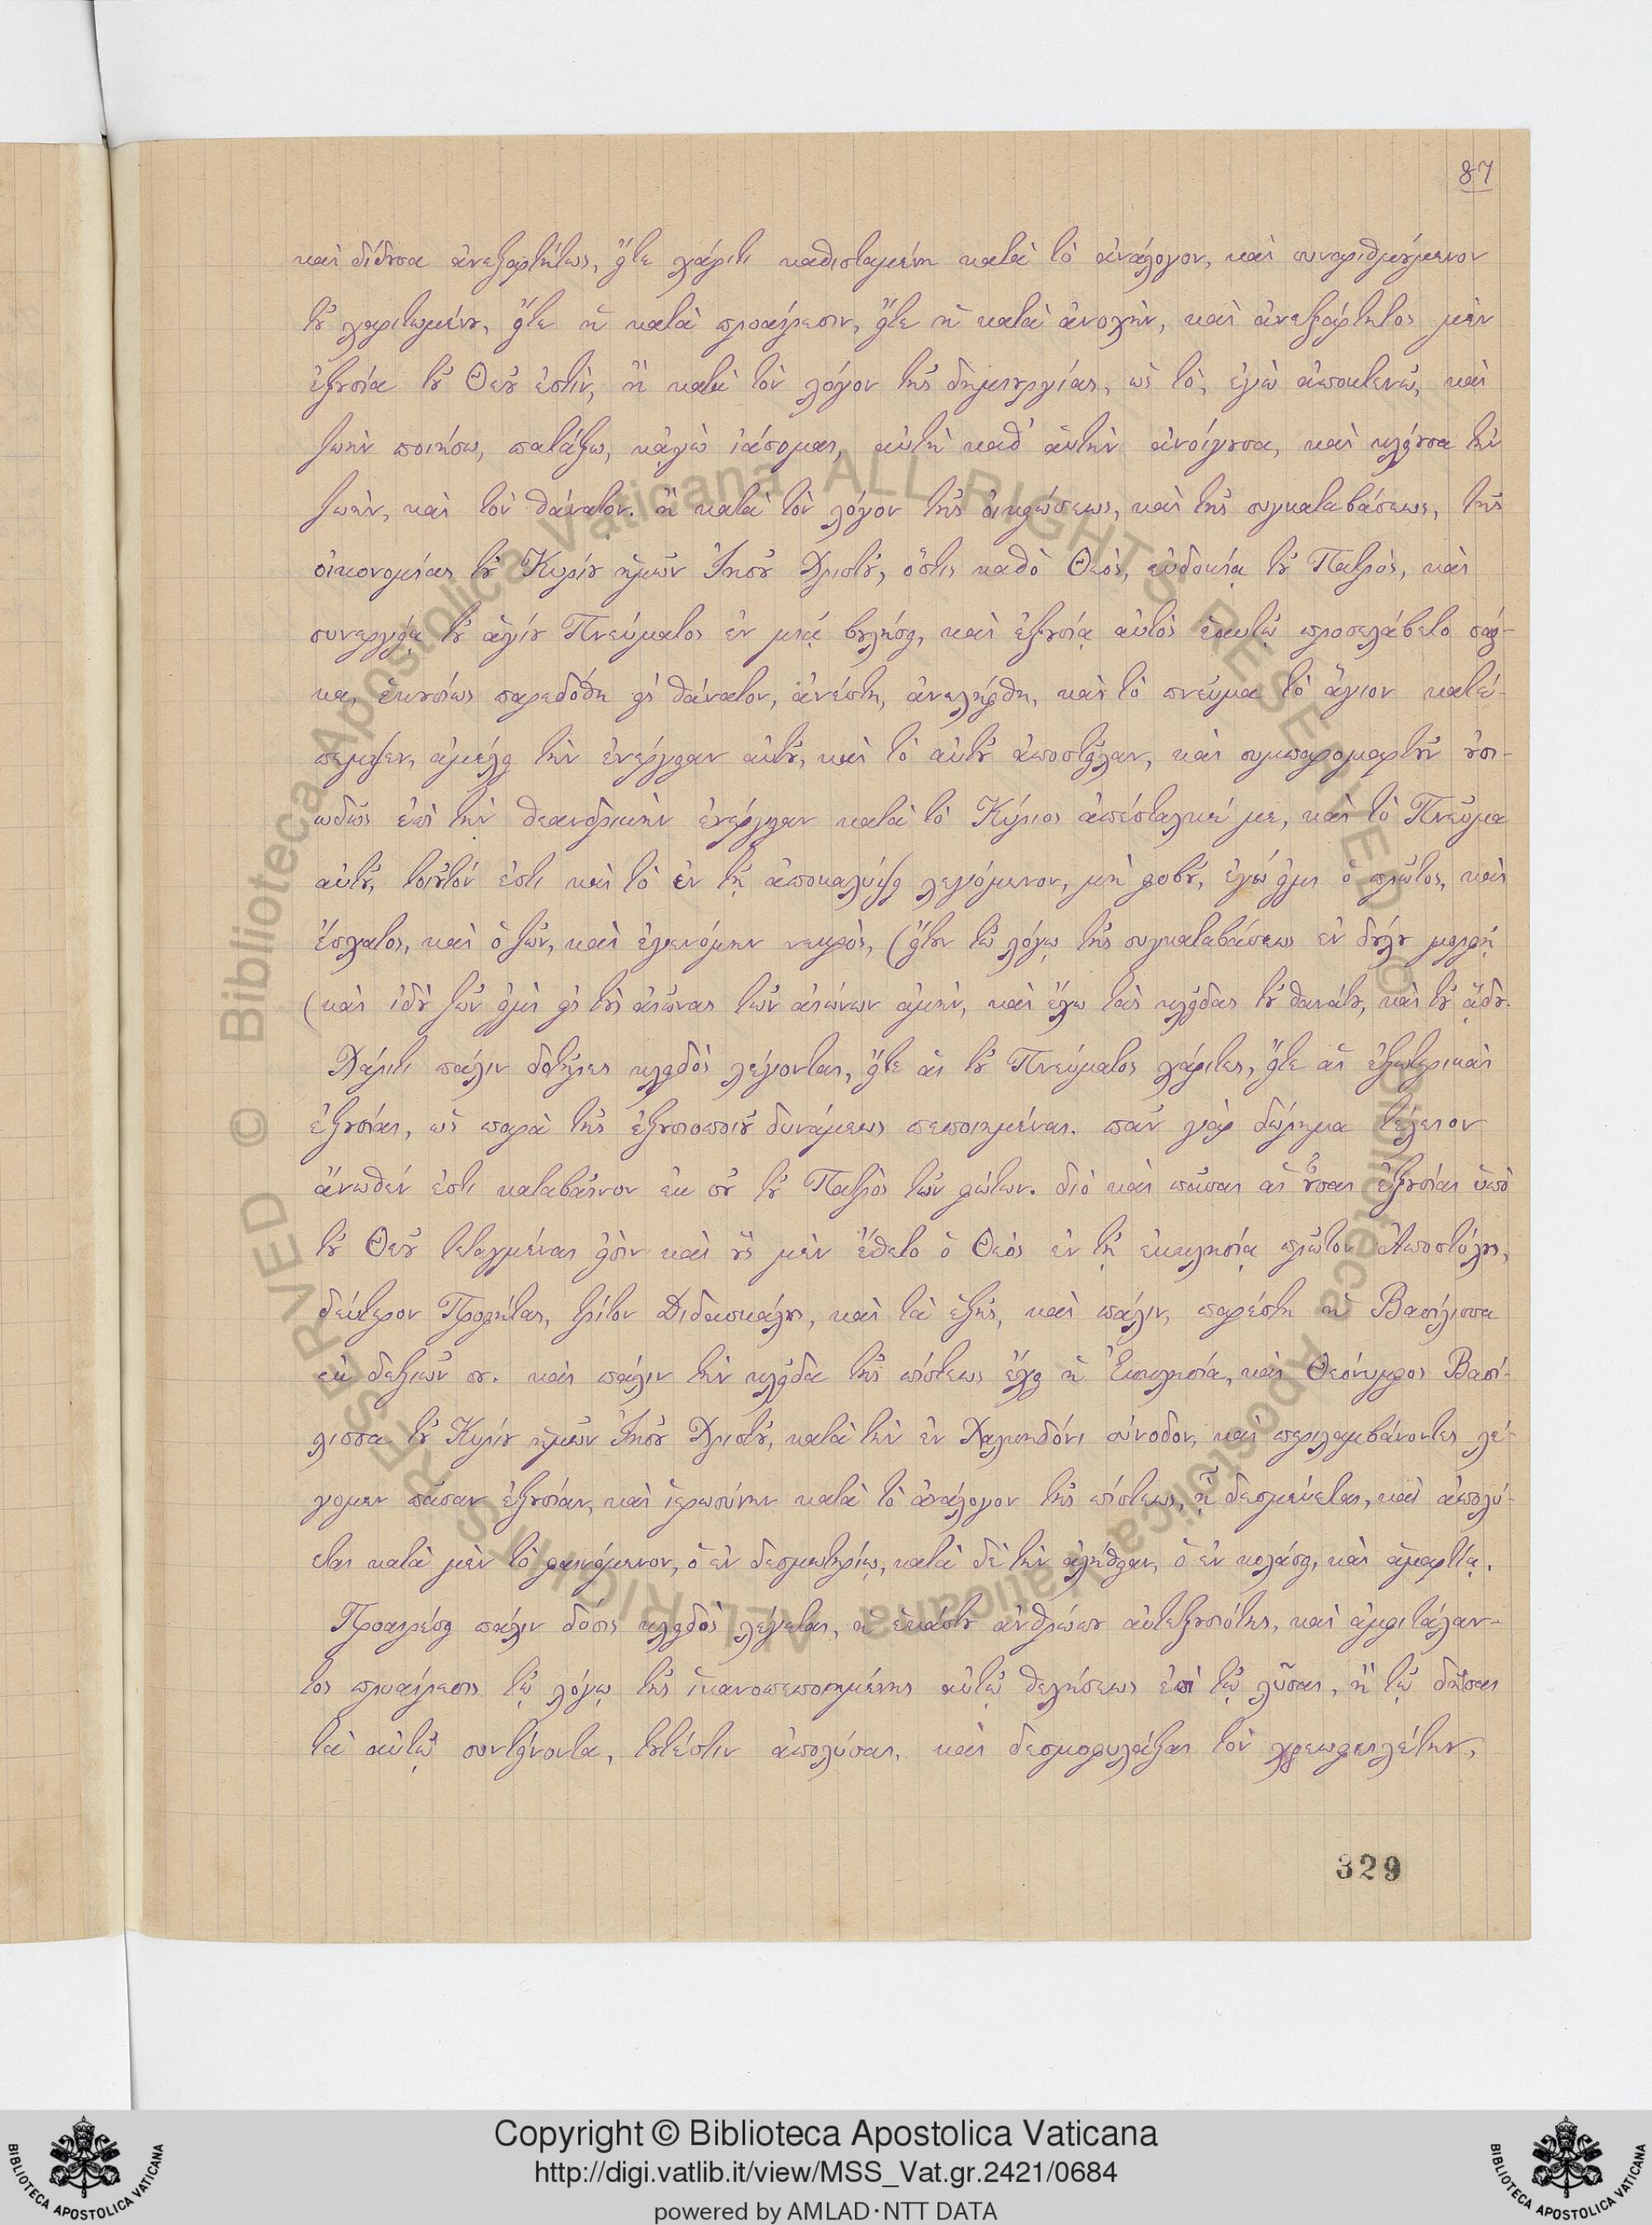 87
καὶ δίδουσα ἀνεξαρτήτως, εἴτε χάριτι καθισταμένη κατὰ τὸ ἀνάλογον, καὶ συναριθμούμενον
τοῦ χαριτωμένου, εἴτε ἡ κατὰ προαίρεσιν, εἴτε ἡ κατὰ ἀνοχὴν, καὶ ἀνεξάρτητος μὲν
ἐξουσία τοῦ Θεοῦ ἐστὶν, ἢ κατὰ τὸν λόγον τῆς δημιουργίας, ὡς τὸ, ἐγὼ ἀποκτενῶ, καὶ
ζωὴν ποιήσω, πατάξω, κᾀγὼ ἰάσομαι, αὐτὴ καθ' αὑτὴν ἀνοίγουσα, καὶ κλείουσα τὴν
ζωὴν, καὶ τὸν θάνατον. ἢ κατὰ τὸν λόγον τῆς οἰκειώσεως, καὶ τῆς συγκαταβάσεως, τῆς
οἰκονομίας τοῦ Κυρίου ἡμῶν Ἰησοῦ Χριστοῦ, ὅστις καθὸ Θεὸς, εὐδοκίᾳ τοῦ Πατρὸς, καὶ
συνεργείᾳ τοῦ ἁγίου Πνεύματος ἐν μιᾷ βουλήσει, καὶ ἐξουσίᾳ αὐτὸς ἑαυτῷ προσελάβετο σάρ-
κα, ἑκουσίως παρεδόθη εἰς θάνατον, ἀνέστη, ἀνελήφθη, καὶ τὸ πνεῦμα τὸ ἅγιον κατέ-
πεμψεν, ἀμέλει τὴν ἐνέργειαν αὐτοῦ, καὶ τὸ αὐτοῦ ἀποστεῖλαν, καὶ συμπαρομαρτοῦν οὐσι-
ωδῶς ἐπὶ τὴν θεανδρικὴν ἐνέργειαν κατὰ τὸ Κύριος ἀπέσταλκέ με, καὶ τὸ Πνεῦμα
αὐτοῦ, τοιοῦτόν ἐστι καὶ τὸ ἐν τῇ ἀποκαλύψει λεγόμενον, μὴ φοβοῦ, ἐγώ εἰμι ὁ πρῶτος, καὶ
ἔσχατος, καὶ ὁ ζῶν, καὶ ἐγενόμην νεκρὸς, (ἤτοι τῷ λόγῳ τῆς συγκαταβάσεως ἐν δούλου μορφῇ
(καὶ ἰδοὺ ζῶν εἰμὶ εἰς τοὺς αἰῶνας τῶν αἰώνων ἀμὴν, καὶ ἔχω τὰς κλεῖδας τοῦ θανάτου, καὶ τοῦ ᾅδου.
Χάριτι πάλιν δοθεῖσαι κλειδὸς λέγονται, εἴτε αἱ τοῦ Πνεύματος χάριτες, εἴτε αἱ ἐξωτερικαὶ
ἐξουσίαι, ὡς παρὰ τῆς ἐξουσιοποιοῦ δυνάμεως πεποιημέναι. πᾶν γὰρ δώρημα τέλειον
ἄνωθέν ἐστι καταβαῖνον ἐκ σοῦ τοῦ Πατρὸς τῶν φώτων. διὸ καὶ πᾶσαι αἱ οὖσαι ἐξουσίαι ὑπὸ
τοῦ Θεοῦ τεταγμέναι εἰσὶν καὶ οὓς μὲν ἔθετο ὁ Θεὸς ἐν τῇ ἐκκλησίᾳ πρῶτον Ἀποστόλους,
δεύτερον Προφήτας, τρίτον Διδασκάλους, καὶ τὰ ἑξῆς, καὶ πάλιν, παρέστη ἡ Βασίλισσα
ἐκ δεξιῶν σου. καὶ πάλιν τὴν κλεῖδα τῆς πίστεως ἔχει ἡ Ἐκκλησία, καὶ Θεόνυμφος Βασί-
λισσα τοῦ Κυρίου ἡμῶν Ἰησοῦ Χριστοῦ, κατὰ τὴν ἐν Χαλκηδόνι σύνοδον, καὶ περιλαμβάνοντες λέ-
γομεν πᾶσαν ἐξουσίαν, καὶ ἱερωσύνην κατὰ τὸ ἀνάλογον τῆς πίστεως, ᾗ δεσμεύεται, καὶ ἀπολύ-
εται κατὰ μὲν τὸ φαινόμενον, ὁ ἐν δεσμωτηρίῳ, κατὰ δὲ τὴν ἀλήθειαν, ὁ ἐν κολάσει, καὶ ἁμαρτίᾳ.
Προαιρέσει πάλιν δόσις κλειδὸς λέγεται, ἡ ἑκάστου ἀνθρώπου αὐτεξουσιότης, καὶ ἀμφιτάλαν-
τος προαίρεσις τῷ λόγῳ τῆς ἱκανοπεποιημένης αὐτῷ θελήσεως ἐπὶ τῷ λῦσαι, ἢ τῷ δῆσαι
τὰ αὐτῷ συντείνοντα, τουτέστιν ἀπολύσαι, καὶ δεσμοφυλάξαι τὸν χρεωφειλέτην,
329
© Biblioteca Apostolica Vaticana ALL RIGHTS RESERVED © Biblioteca Apostolica Vaticana ALL RIGHTS RESERVED
Copyright © Biblioteca Apostolica Vaticana
http://digi.vatlib.it/view/MSS_Vat.gr.2421/0684
powered by AMLAD·NTT DATA
BIBLIOTECA APOSTOLICA VATICANA
BIBLIOTECA APOSTOLICA VATICANA